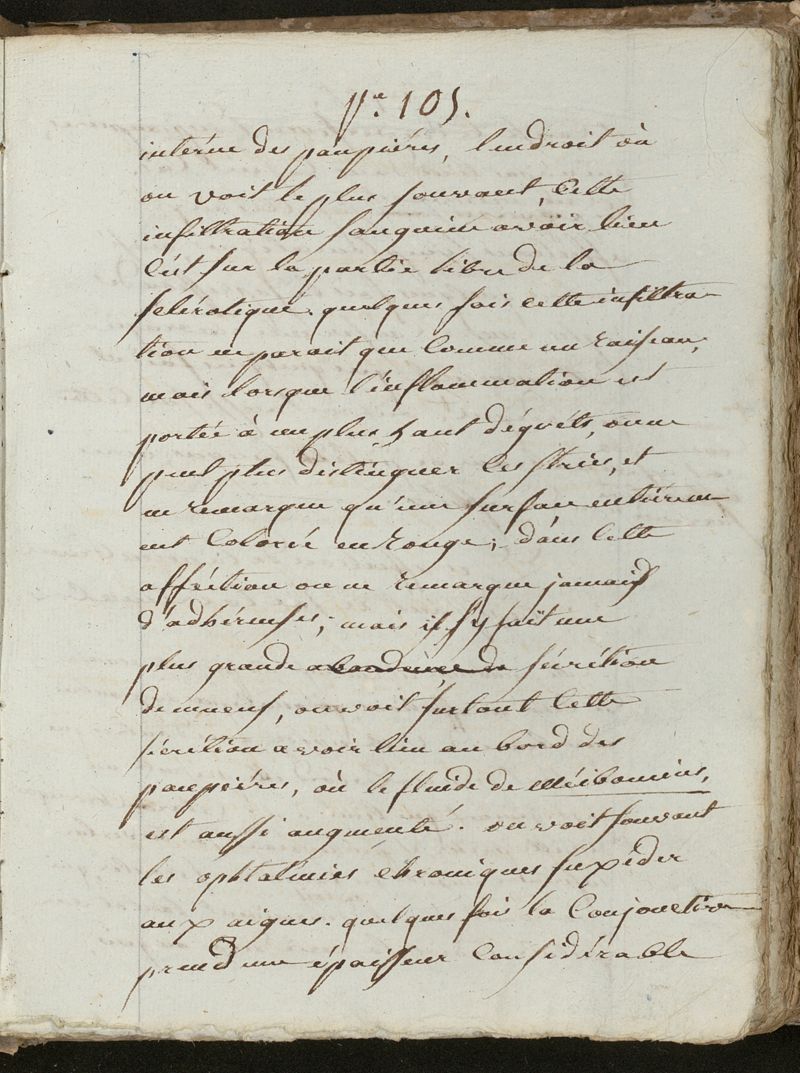 p.e 105.
interne des paupiéres, l'endroit où
on voit le plus souvent, Cette
infiltration sanguine avoir lieu
C'est sur la partie libre de la
sclérotique. quelques fois cette infiltra-
tion ne parait que Comme un raiseau,
mais lorsque l'inflammation est
portée à un plus haut dégréts, on ne
peut plus distinguer les stries, et
on remarque qu'une surface entiérem
ent Colorée en rouge; dans Cette
afféction on ne remarque jamais
d'adhérenses; mais il s'y fait une
plus grande abondence de sécrétion
de mucus, on voit surtout Cette
sécrétion avoir lieu au bord des
paupiéres, où le fluide de Méibomius,
est aussi augmenté. on voit souvent
les ophtalmies chroniques supéder
aux aigues. quelques fois la Conjonctive
prend une épaisseur Considérable